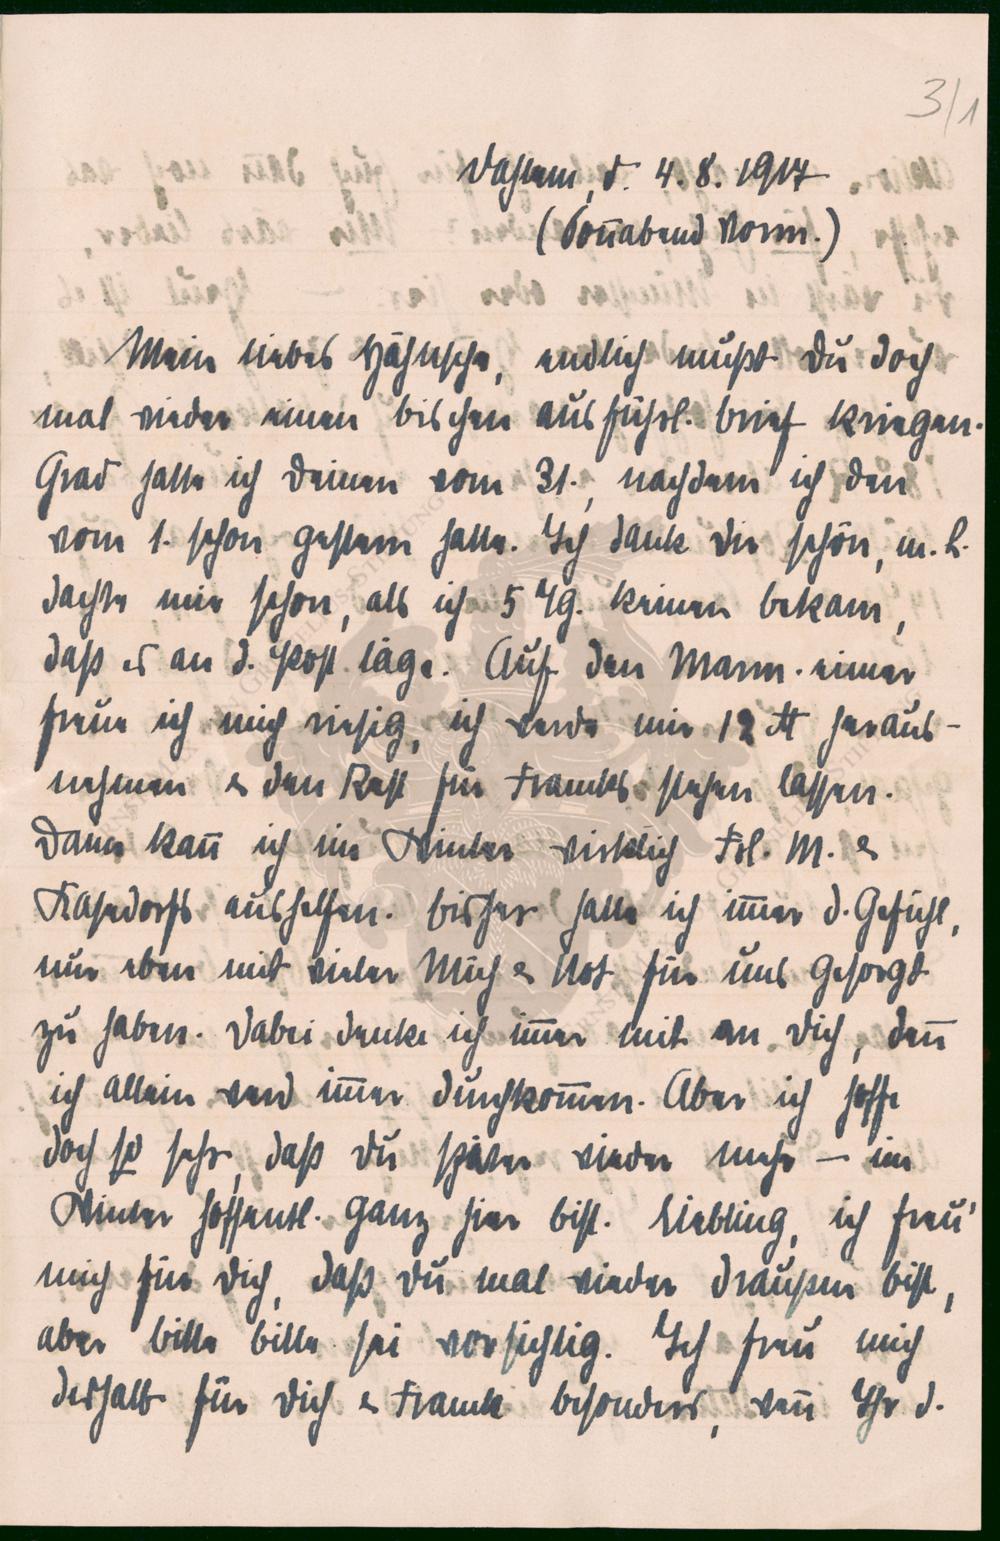 3/1
Dahlem, d. 4. 8. 1917
(Sonnabend Vorm.)
Mein liebes Hähnsche, endlich mußt Du doch
mal wieder einen bischen ausführl. brief kriegen.
Grad hatte ich Deinen vom 31., nachdem ich den
vom 1. schon gestern hatte. Ich dank Dir schön, m. L.
dachte mir schon, als ich 5 Tg. keinen bekam,
daß es an d. Post läge. Auf den Marm. eimer
freue ich mich riesig, ich werde mir 12 ℔ heraus-
nehmen & den Rest für Francks stehen lassen.
Dann kan̅ ich im Winter wirklich Frl. M. &
aushelfen. bisher hatte ich im̅er d. Gefühl,
nur eben mit vieler Müh & Not für uns gesorgt
zu haben. Dabei denke ich im̅er mit an Dich, den̅
ich allein werd im̅er durchkom̅en. Aber ich hoffe
doch so sehr, daß Du später wieder mehr – im
Winter hoffentl. ganz hier bist. Liebling, ich freu'
mich für Dich, daß Du mal wieder draußen bist,
aber bitte bitte sei vorsichtig. Ich freu mich
deshalb für Dich & Franck besonders, wen̅ Ihr d.